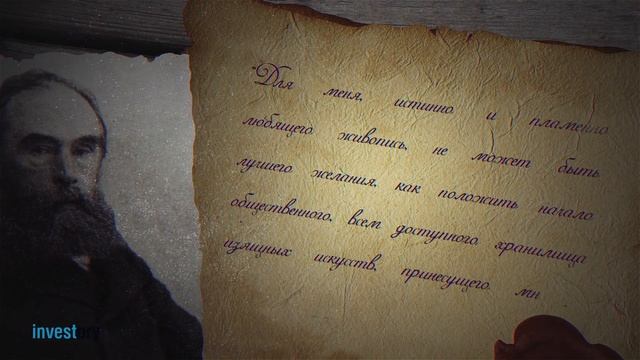 "Для меня, истинно и пламенно
любящего живопись, не может быть
лучшего желания, как положить начало
общественного, всем доступного хранилища
изящных искусств, принесущего мн
investory